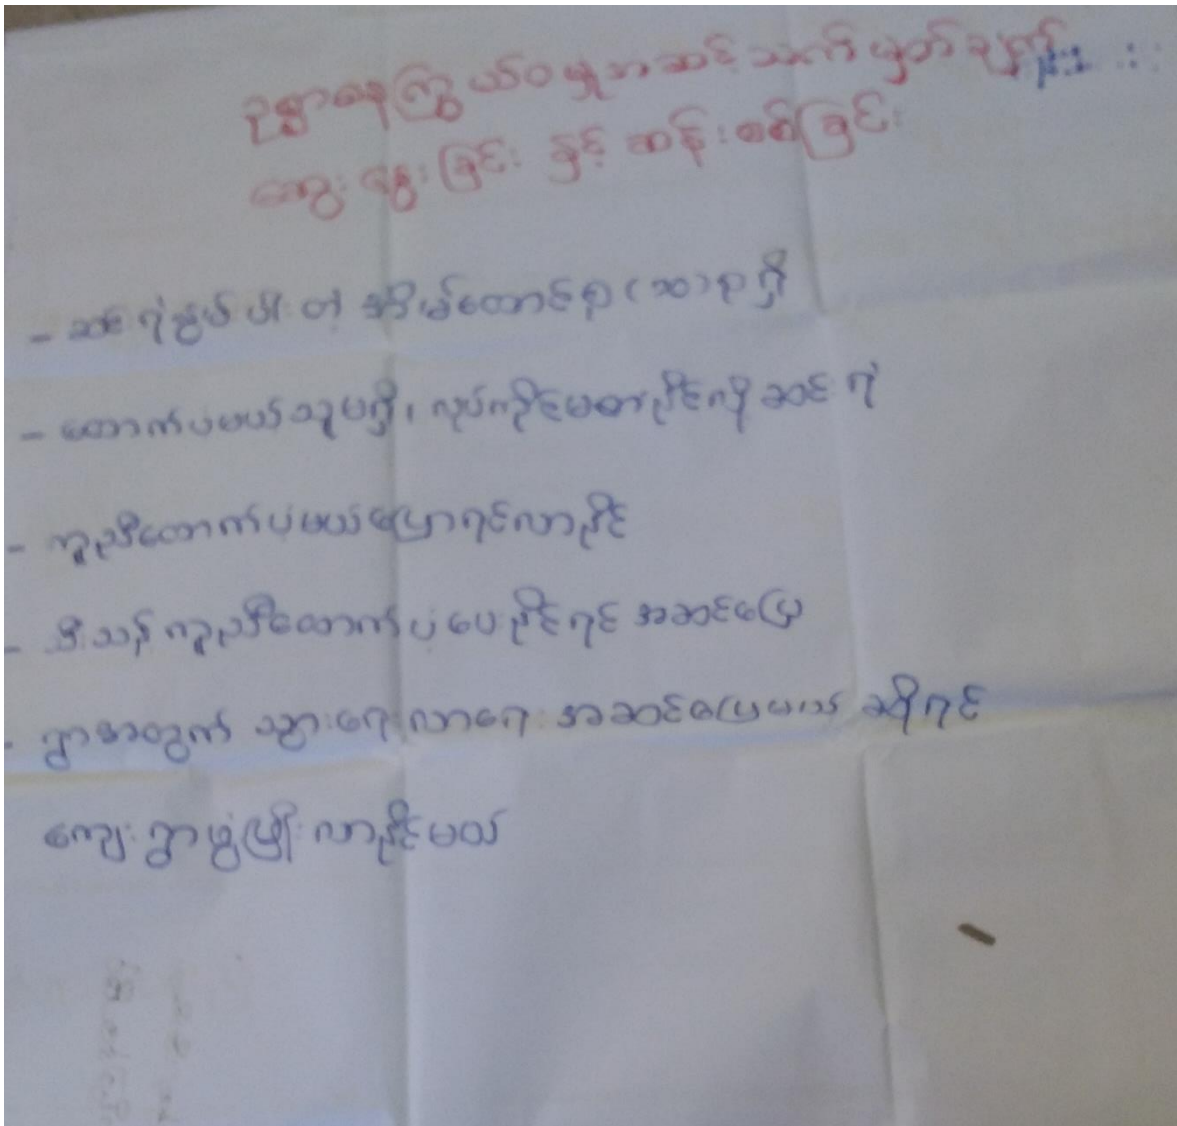 ဥစ္စာဓနကြွယ်ဝမှုအဆင့်သတ်မှတ်ချက်
ဆွေးနွေးခြင်း နှင့် ဆန်းစစ်ခြင်း
- ဆင်းရဲနွမ်းပါးတဲ့ အိမ်ထောင်စု (၁၀) စုရှိ
- ထောက်ပံမယ်သူမရှိ၊ လုပ်ကိုင်မစားနိုင်လို့ ဆင်းရဲ
- ကူညီထောက်ပံ့မယ်ပြောရင်လာနိုင်
- ဒီ့သန် ကူညီထောက်ပံ့ပေးနိုင်ရင် အဆင်ပြေ
- ရွာအတွက် သွားရေးလာရေး အဆင်ပြေမယ် ဆိုရင်
ကျေးရွာဖွံ့ဖြိုးလာနိုင်မယ်